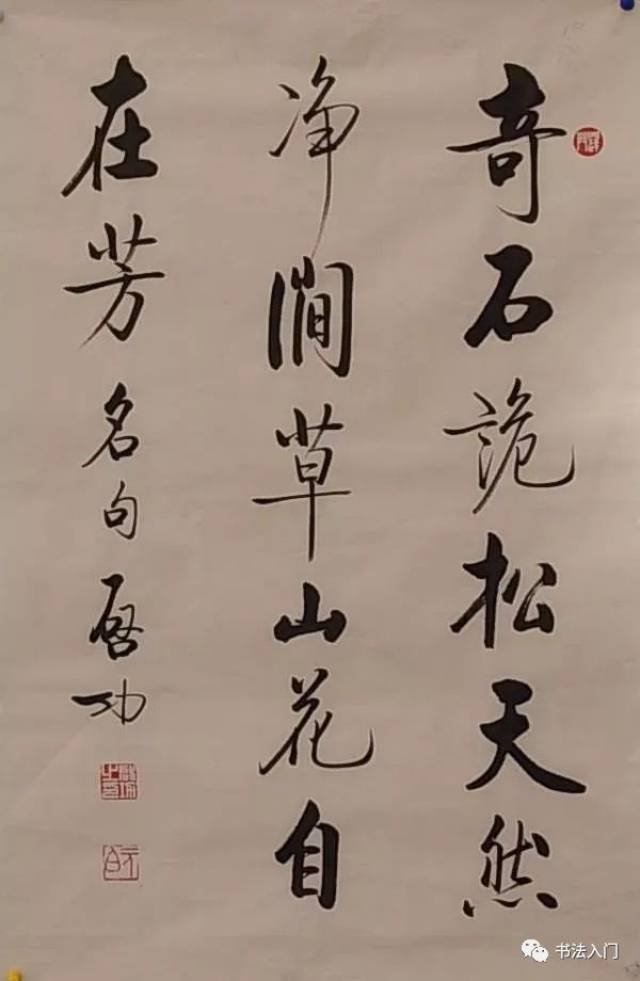 奇石詭松天然
净澗草山花自
在芳 名句 啓功
书法入门